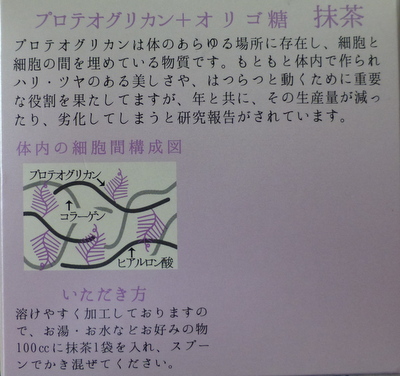 プロテオグリカン＋オリゴ糖　抹茶
プロテオグリカンは体のあらゆる場所に存在し、細胞と
細胞の間を埋めている物質です。もともと体内で作られ
ハリ・ツヤのある美しさや、はつらつと動くために重要
な役割を果たしてますが、年と共に、その生産量が減っ
たり、劣化してしまうと研究報告がされています。
体内の細胞間構成図
プロテオグリカン
コラーゲン
ヒアルロン酸
いただき方
溶けやすく加工しておりますの
で、お湯・お水などお好みの物
100ccに抹茶1袋を入れ、スプー
ンでかき混ぜてください。